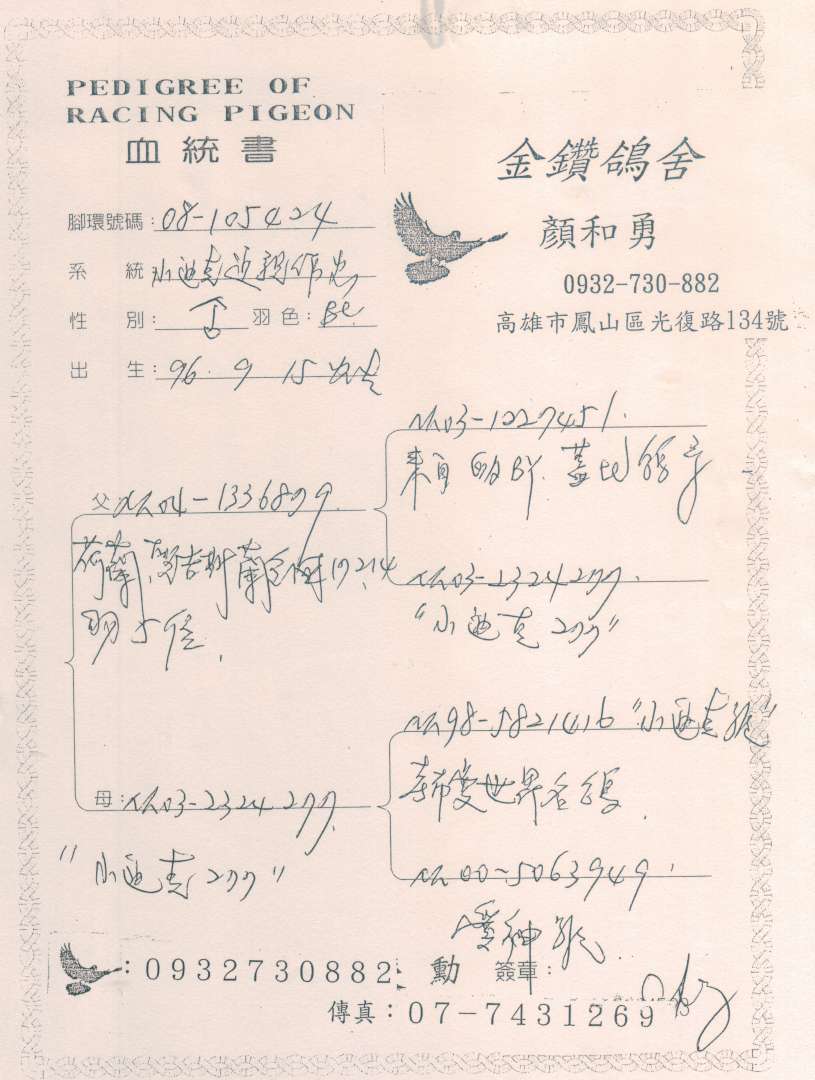 PEDIGREE OF
RACING PIGEON
血統書
金鑽鴿舍
顏和勇
0932-730-882
高雄市鳳山區光復路134號
腳環號碼：08-105424
系統 小迪克近親作出
性別： 羽色：BC
出生：96.9.15 出生
父 NL04-1336879
荷蘭
羽 5 位
NL03-1227451.
來自 BY.
NL03-2324277.
"小迪克277"
母：NL03-2324277.
"小迪克277"
NL98-5821416 "小迪克號"
世界名鴿
NL00-5063949.
愛神號
：0932730882 勳 簽章：
傳真：07-7431269